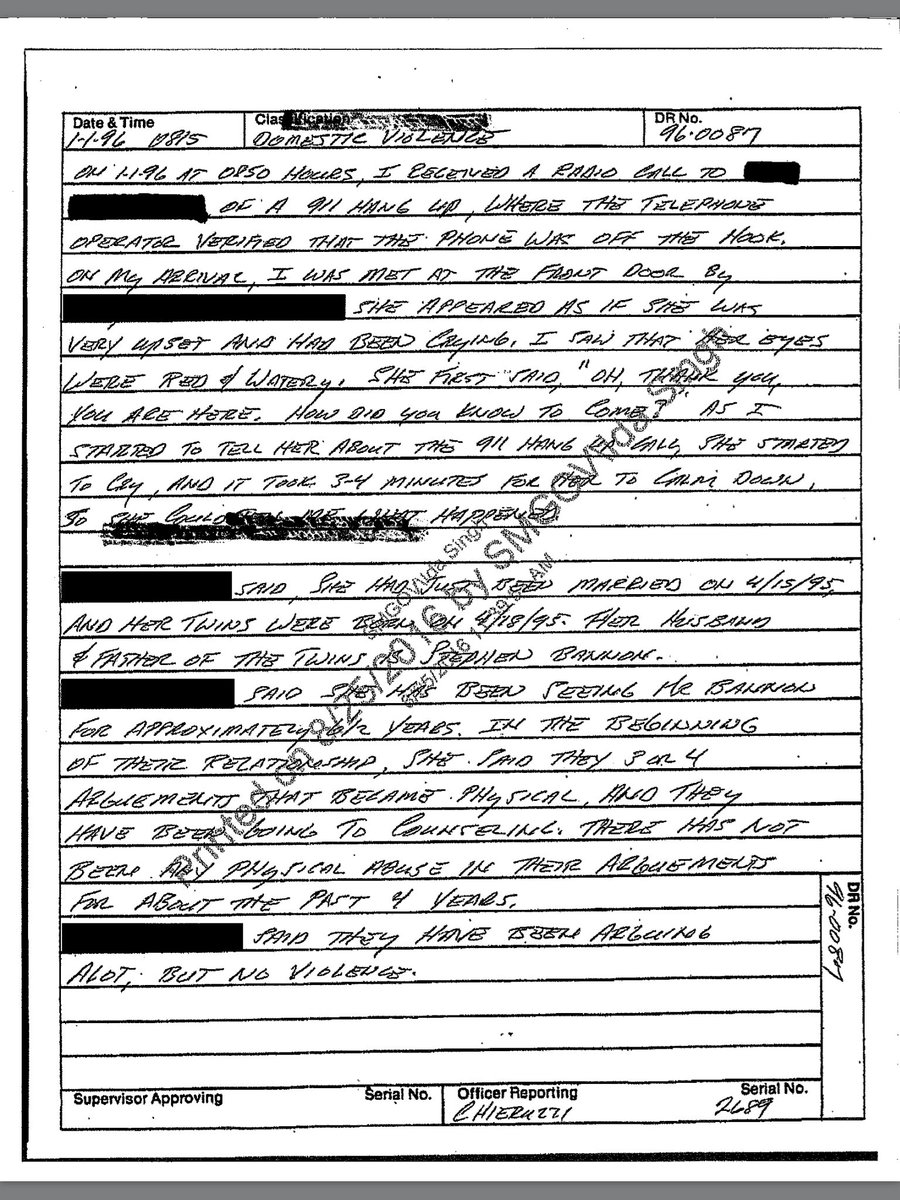 Date & Time Classification DR No.
1-1-96 0815 DOMESTIC VIOLENCE 96-0087
ON 1-1-96 AT 0850 HOURS, I RECEIVED A RADIO CALL TO
OF A 911 HANG UP, WHERE THE TELEPHONE
OPERATOR VERIFIED THAT THE PHONE WAS OFF THE HOOK.
ON MY ARRIVAL, I WAS MET AT THE FRONT DOOR BY
SHE APPEARED AS IF SHE WAS
VERY UPSET AND HAD BEEN CRYING. I SAW THAT HER EYES
WERE RED & WATERY. SHE FIRST SAID, "OH, THANK YOU,
YOU ARE HERE. HOW DID YOU KNOW TO COME?" AS I
STARTED TO TELL HER ABOUT THE 911 HANG UP CALL, SHE STARTED
TO CRY, AND IT TOOK 3-4 MINUTES FOR HER TO CALM DOWN,
SO SHE COULD TELL ME WHAT HAPPENED
SAID, SHE HAD JUST BEEN MARRIED ON 4/15/95,
AND HER TWINS WERE BORN ON 4/18/95. HER HUSBAND
& FATHER OF THE TWINS IS STEPHEN BANNON.
SAID SHE HAS BEEN SEEING MR BANNON
FOR APPROXIMATELY 6 1/2 YEARS. IN THE BEGINNING
OF THEIR RELATIONSHIP, SHE SAID THEY 3 OR 4
ARGUEMENTS THAT BECAME PHYSICAL, AND THEY
HAVE BEEN GOING TO COUNSELING. THERE HAS NOT
BEEN ANY PHYSICAL ABUSE IN THEIR ARGUEMENTS
FOR ABOUT THE PAST 4 YEARS.
SAID THEY HAVE BEEN ARGUING
ALOT, BUT NO VIOLENCE.
DR No.
96-0087
Supervisor Approving Serial No. Officer Reporting Serial No.
CHIERUZZI 2689
Printed on 8/25/2016 by SMGOV\Ilda Singh